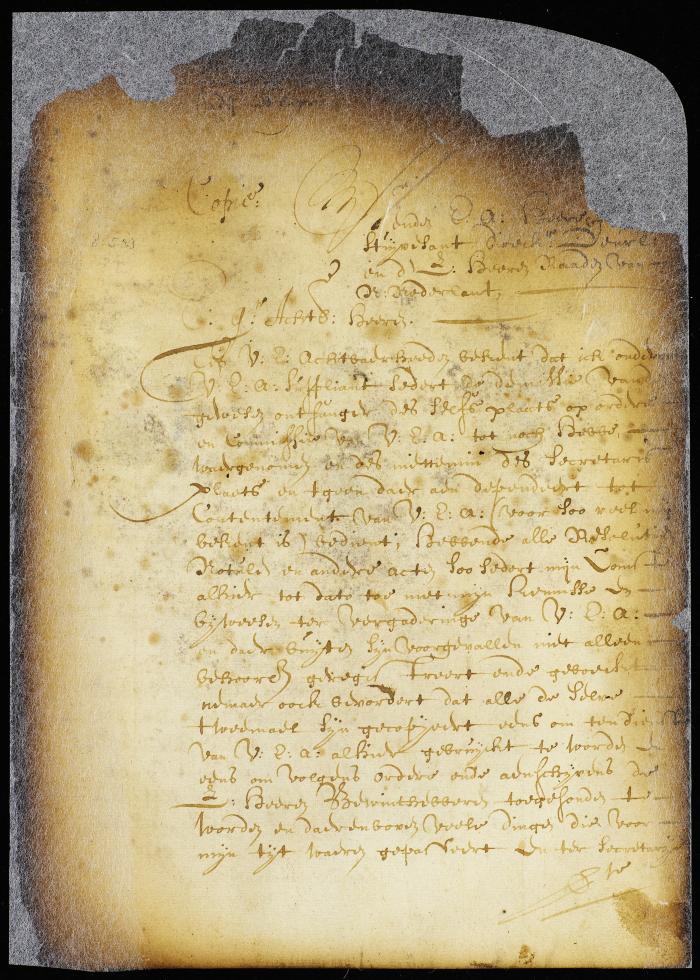 Copie:
enden E. A: Heere
Stuyvesant Direct:
en d' E: Heeren Raaden van
N: Nederlant,
Achtb: Heeren.
V: E: Achtbaerheeden bekent dat ick onder
V: E: A: Suppliant sedert de demissie vand
gewesen ontfanger des selfs plaats op ordre
en Commissie van V: E: A: tot noch hebbe
waergenomen en des niettemin des Secretaris
plaets en tgeen daer aen dependeert tot
Contentement van V: E: A: (voor soo veel mij
bekent is) bedient, hebbende alle Resoluti
Notulen en andere acten soo sedert mijn Coms
alhier tot dato toe met mijn kennisse en
bijweesen ter vergaderinge van V: E: A:
en daer buijten sijn voorgevallen niet alleen
behoorlh geregis treert ende geboeckt
nemaer oock bevordert dat alle de selve
tweemael sijn gecopyeert eens om ten dien
van V: E: A: alhier gebruyckt te worden en
eens om volgens ordere ende aenschrijvens der
E: Heeren Bewinthebberen toegesonden te
worden en daerenboven veele dingen die voor
mijn tijt waeren gepasseert en ter Secretary